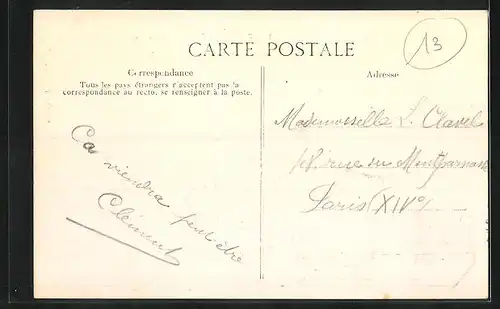 CARTE POSTALE
13
Correspondance
Tous les pays étrangers n'acceptent pas la
correspondance au recto, se renseigner à la poste.
Ca viendra peut-être
Clément
Adresse
Mademoiselle L. Clavel
rue du Montparnasse
Paris (XIVe)